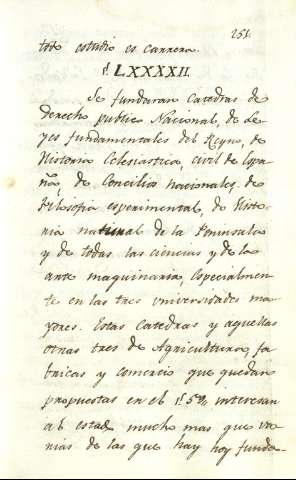 251.
todo estudio es carrera.
§. LXXXXII.
Se fundaran Catedras de
derecho publico Nacional, de Le-
yes fundamentales del Reyno, de
Historia Eclesiastica, civil de Espa-
ña, de Concilios nacionales, de
filosofia esperimental, de Histo-
ria natural de la Peninsula
y de todas las ciencias y de la
arte maquinaria, especialmen-
te en las tres universidades ma-
yores. Estas Catedras y aquellas
otras tres de Agricultura, fa-
bricas y comercio que quedan
propuestas en el §. 5º, interesan
al estado mucho mas que va-
rias de las que hay hoy funda-